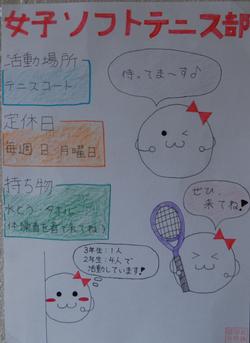 女子ソフトテニス部
活動場所
テニスコート
待ってま～す♪
定休日
毎週日、月曜日
持ち物
水とう・タオル
(体操着を着て来てね)
ぜひ、
来てね♡
3年生:1人
2年生:4人で
活動しています!